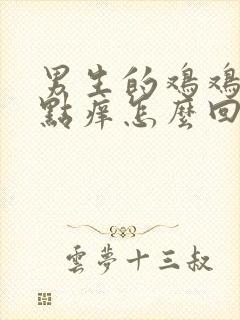 男生的鸡鸡
點痒怎麼回
雲夢十三叔